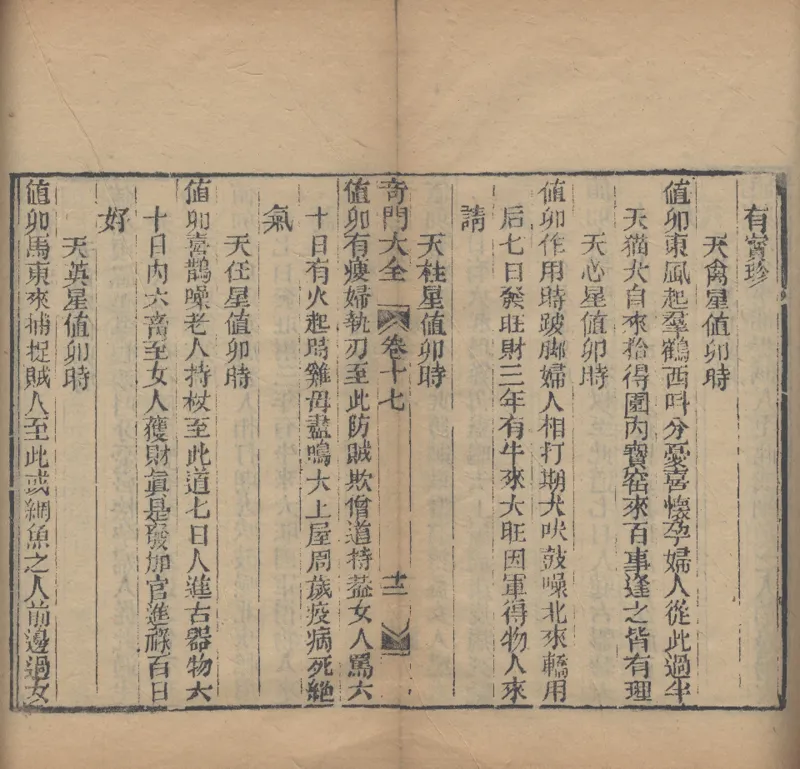 有寳珍
天禽星值卯時
值卯東風起羣鶴西呌分憂喜懷孕婦人從此過半
天猫犬自來拾得園內寶窑來百事逢之皆有理
天心星值卯時
值卯作用時跛脚婦人相打期犬吠鼓噪北來轎用
后七日發旺財三年有牛來大旺因軍得物人來
請
天柱星值卯時
奇門大全
卷十七
十二
值卯有瘦婦執刃至此防賊欺僧道持葢女人罵六
十日有火起時雞母盡鳴犬上屋周歲疫病死絶
氣
天任星值卯時
值卯喜鵲噪老人持杖至此道七日人進古器物六
十日內六畜至女人獲財眞是發加官進祿百日
好
天英星值卯時
值卯馬東來捕捉賊人至此或綱魚之人前邊過女